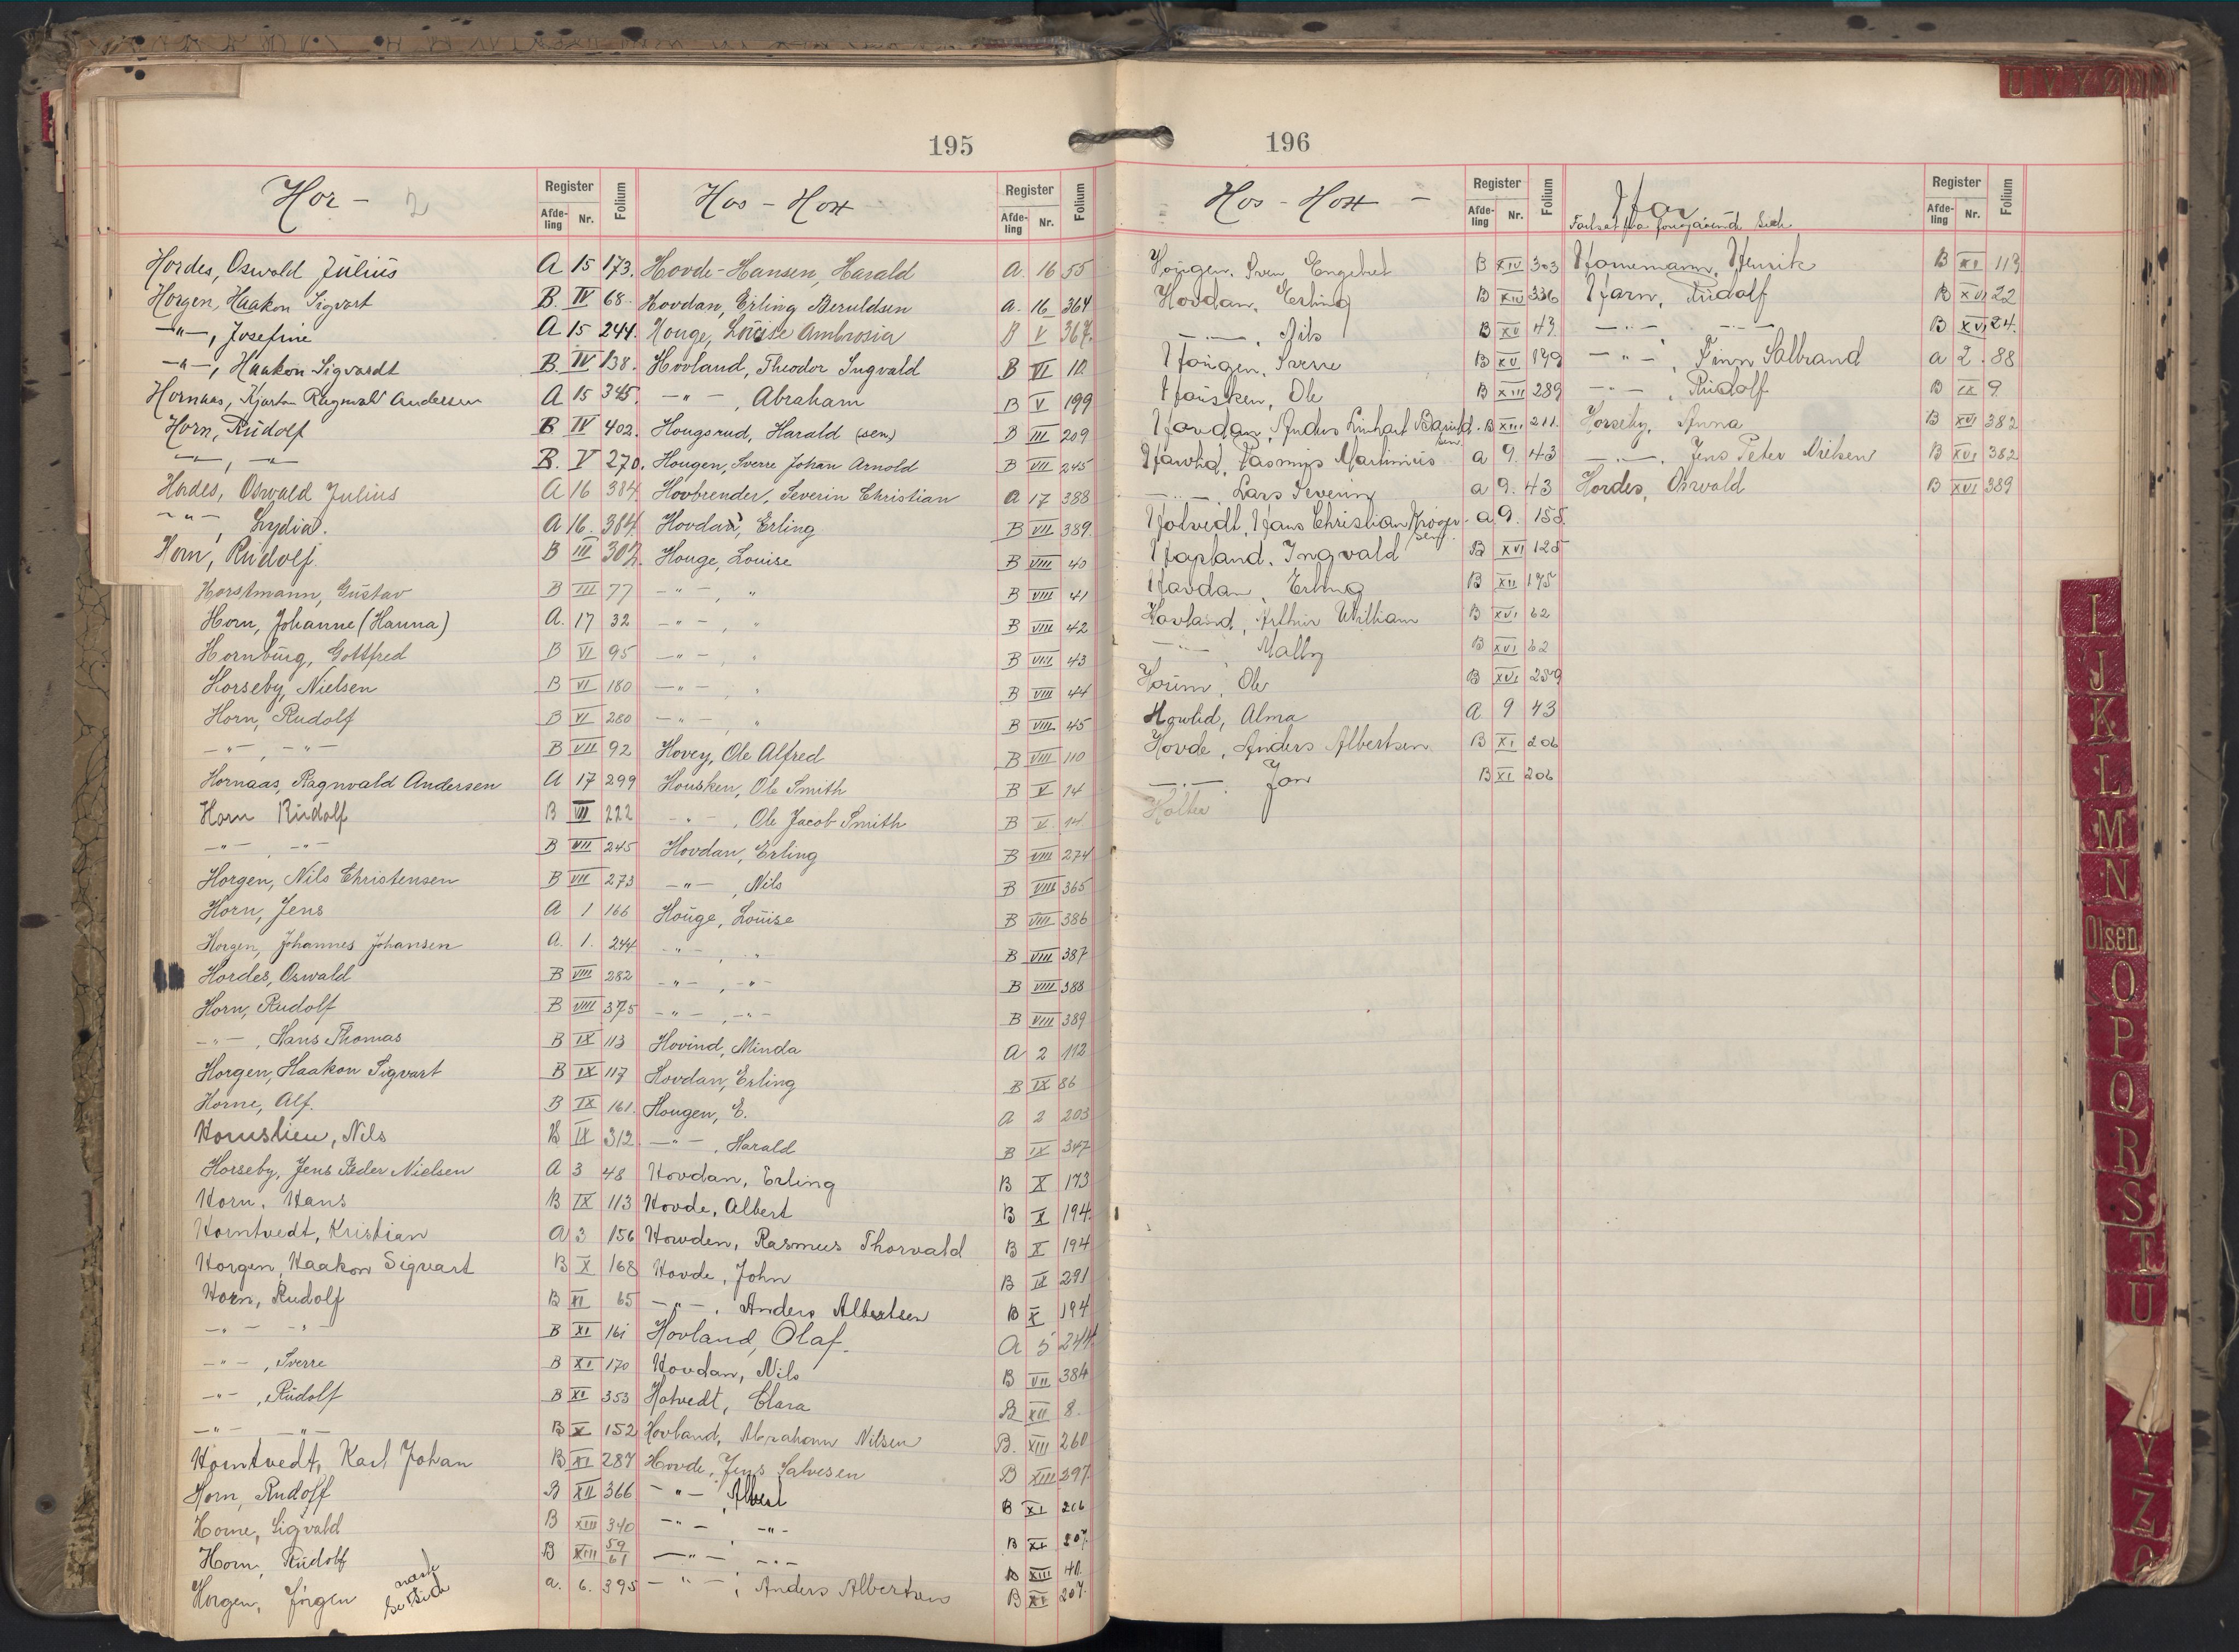 195
Hor - 2
Register
Afde-
ling
Nr.
Folium
Hordes, Oswald Julius A 15 173.
Horgen, Haakon Sigvart B. IV 68.
-"-, Josefine A 15 244.
-"-, Haakon Sigvardt B. IV 138.
Hornaas, Kjartan Ragnvald Andersen A 15 345.
Horn, Rudolf B IV 402.
-"-, -"- B. V 270.
Hordes, Oswald Julius A 16 384
-"-, Lydia. A 16. 384.
Horn, Rudolf B III 302.
Horstmann, Gustav B III 77
Horn, Johanne (Hanna) A. 17 32
Hornburg, Gottfred B VI 95
Horseby, Nielsen B VI 180
Horn, Rudolf B VI 280
-"-, -"- B VII 92
Hornaas, Ragnvald Andersen A 17 299
Horn Rudolf B VII 222
-"-, -"- B VII 245
Horgen, Nils Christensen B VII 273
Horn, Jens A 1 166
Horgen, Johannes Johansen A. 1. 244
Hordes, Oswald B VIII 282
Horn, Rudolf B VIII 375
-"-, Hans Thomas B IX 113
Horgen, Haakon Sigvart B IX 117
Horne, Alf. B IX 161.
Hornslien, Nils B IX 312
Horseby, Jens Peder Nielsen A 3 48
Horn, Hans B IX 113
Horntvedt, Kristian A 3 156
Horgen, Haakon Sigvart B X 168
Horn, Rudolf B XI 65
-"- -"- B XI 161
-"-, Sverre B XI 170
-"-, Rudolf B XI 353
-"- -"- B X 152
Horntvedt, Karl Johan B XI 287
Horn, Rudolf B XII 366
Horne, Sigvald B XIII 340
Horn, Rudolf B XIII 59/61
Horgen, Jörgen a. 6. 395
se næste side
Hos - Hox
Register
Afde-
ling
Nr.
Folium
Hovde-Hansen, Harald A. 16 55
Hovdan, Erling Beruldsen a. 16 364
Houge, Louise Ambrosia B V 367.
Hovland, Theodor Ingvald B VI 10
-"-, Abraham B V 199
Hougsrud, Harald (sen) B III 209
Hougen, Sverre Johan Arnold B VII 245
Hovbrender, Severin Christian A 17 388
Hovdan, Erling B VII 389.
Houge, Louise B VIII 40
-"-, " B VIII 41
-"-, " B VIII 42
-"-, " B VIII 43
-"-, " B VIII 44
-"-, " B VIII 45
Hovey, Ole Alfred B VIII 110
Housken, Ole Smith B V 14
-"-, Ole Jacob Smith B V. 14
Hovdan, Erling B VIII 274
-"-, Nils B VIII 365
Houge, Louise B VIII 386
-"-, -"- B VIII 387
-"-, -"- B VIII 388
-"-, -"- B VIII 389
Hovind, Minda A 2 112
Hovdan, Erling B IX 86
Hougen, E. A 2 203
-"-, Harald B IX 347
Hovdan, Erling B X 173
Hovde, Albert B X 194.
Howden, Rasmus Thorvald B X 194
Hovde, John B IX 291
-"-, Anders Albertsen B X 194
Hovland, Olaf. A 5 244
Hovdan, Nils B VII 384
Hotvedt, Clara B XII 8.
Hovland, Abraham Nilsen B. XIII 260
Hovde, Jens Salvesen B XIII 297.
-"- Albert B XI 206
-"- -"- B XI 207.
-"- -"- B XIII 40.
-"-, Anders Albertsen B XI 207.
196
Hos - Hox -
Register
Afde-
ling
Nr.
Folium
Hougen, Sven Engebret B XIV 303
Hovdan, Erling B XIV 336
-"-, Nils B XV 43.
Hougen, Sverre B XV 199
Housken, Ole B XIII 289
Hovdan, B XIII 211.
Howlid, Martinius a 9. 43
-"-, Lars Severin a 9. 43
Hotvedt, Hans Christian a 9. 155.
Hopland, Ingvald B XVI 125
Hovdan, Erling B XII 175
Hovland, Arthur William B XVI 62
-"- Mally B XVI 62
Houm, Ole B XVI 259
Howlid, Alma A 9 43
Hovde, Anders Albertsen B XI 206
-"-, Jon B XI 206
Holter
Hor
Fortsat fra foregaaende side
Register
Afde-
ling
Nr.
Folium
Hornemann, Henrik B XI 113
Horn, Rudolf B XVI 22
-"- -"- B XVI 24.
-"-, Finn Salbrand a 2. 88
-"-, Rudolf B IX 9.
Horseby, Anna B XVI 382
-"-, Jens Peter Nielsen B XVI 382
Hordes, Oswald B XVI 389
U V Y Z
I
J
K
L
M
N
Olsen
O
P
Q
R
S
T
U
V
Y
Z